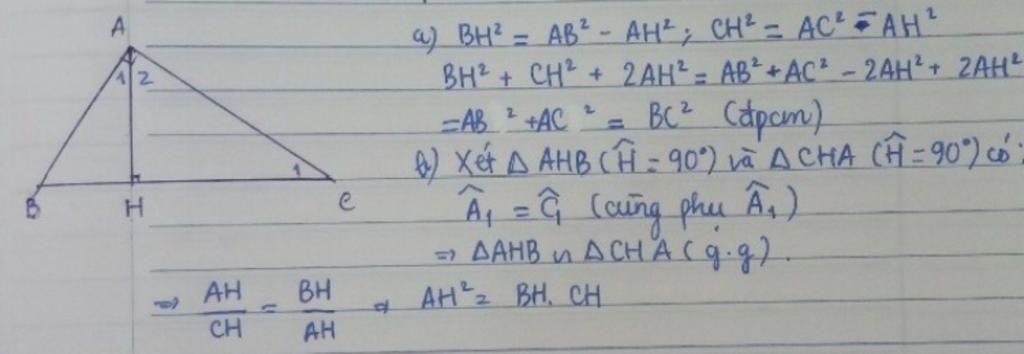 A
1 2
1
B H C
a) BH² = AB² - AH²; CH² = AC² - AH²
BH² + CH² + 2AH² = AB² + AC² - 2AH² + 2AH²
= AB² + AC² = BC² (đpcm)
b) Xét △ AHB (Ĥ = 90°) và △ CHA (Ĥ = 90°) có:
Â₁ = Ĉ₁ (cùng phụ Â₁)
⇒ △AHB ᔕ △CHA (g.g).
⇒ AH/CH = BH/AH ⇒ AH² = BH. CH